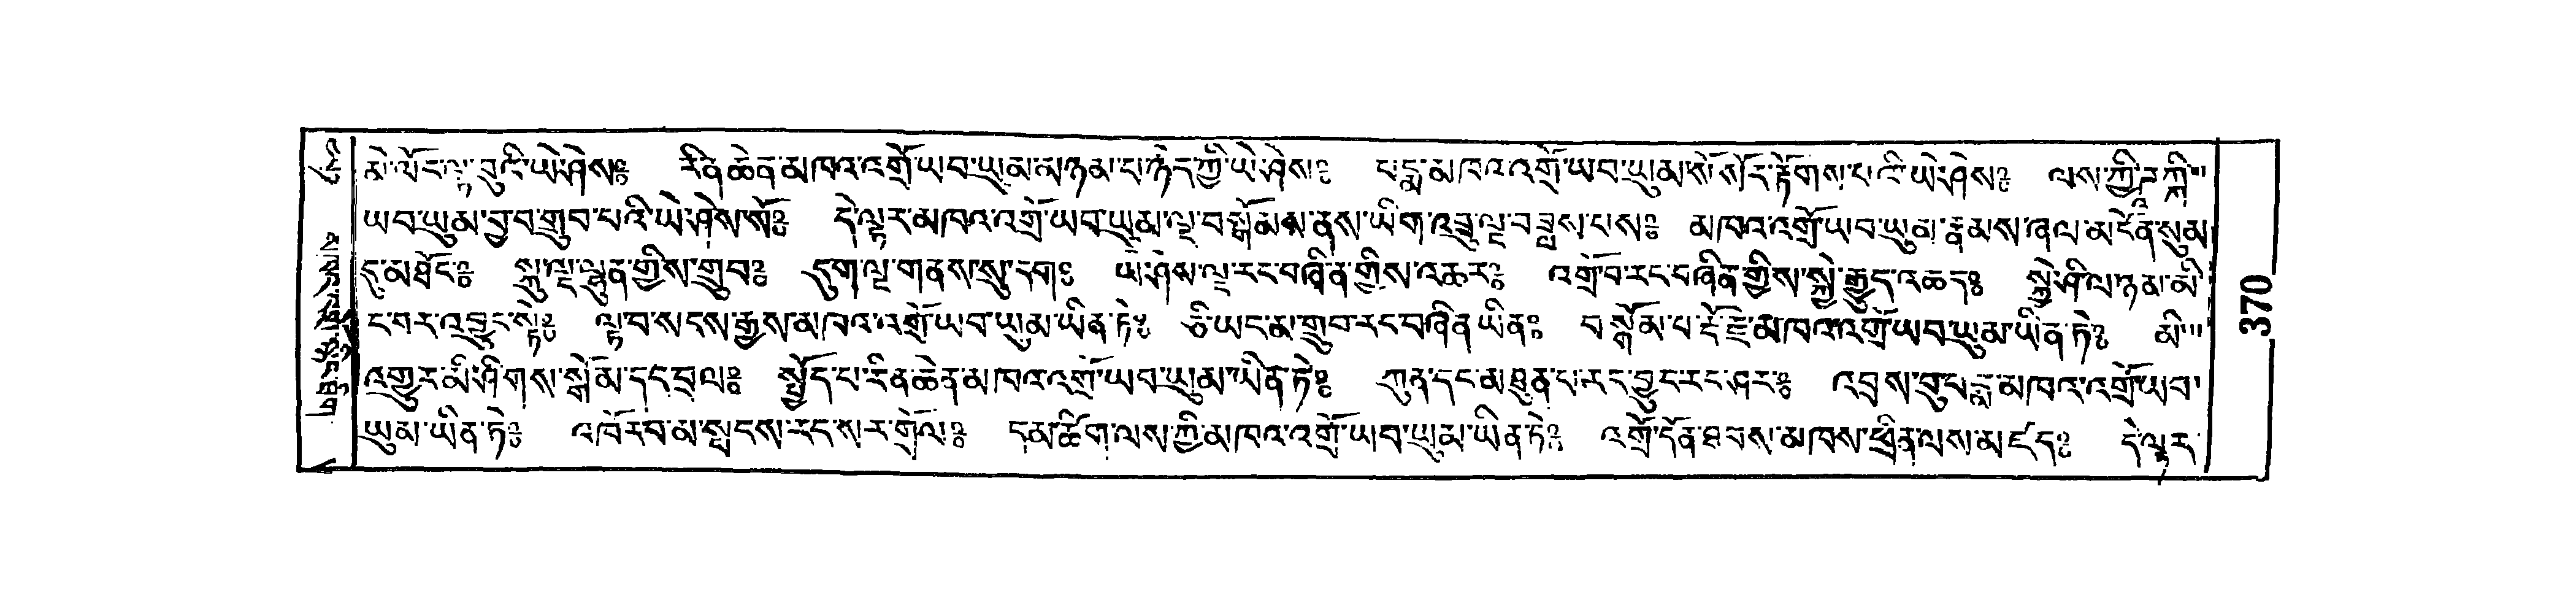 མེ་ལོང་ལྟ་བུའི་ཡེ་ཤེས༔ རིན་ཆེན་མཁའ་འགྲོ་ཡབ་ཡུམ་མཉམ་པ་ཉིད་ཀྱི་ཡེ་ཤེས༔ པདྨ་མཁའ་འགྲོ་ཡབ་ཡུམ་སོ་སོར་རྟོགས་པའི་ཡེ་ཤེས༔ ལས་ཀྱི་ཌཱཀྐི
ཡབ་ཡུམ་བྱ་བ་གྲུབ་པའི་ཡེ་ཤེས་སོ༔ དེ་ལྟར་མཁའ་འགྲོ་ཡབ་ཡུམ་ལྔ་བསྒོམས་ནས་ཡིག་འབྲུ་ལྔ་བཟླས་པས༔ མཁའ་འགྲོ་ཡབ་ཡུམ་རྣམས་ཞལ་མངོན་སུམ
དུ་མཐོང༔ སྐུ་ལྔ་ལྷུན་གྱིས་གྲུབ༔ དུག་ལྔ་གནས་སུ་དག༔ ཡེ་ཤེས་ལྔ་རང་བཞིན་གྱིས་འཆར༔ འགྲོ་བ་རང་བཞིན་གྱིས་སྐྱེ་རྒྱུད་འཆད༔ སྐྱེ་ཤི་ལ་ཉམ་མི
ང་བར་འབྱུང་སྟེ༔ ལྟ་བ་སངས་རྒྱས་མཁའ་འགྲོ་ཡབ་ཡུམ་ཡིན་ཏེ༔ ཅི་ཡང་མ་གྲུབ་རང་བཞིན་ཡིན༔ བསྒོམ་པ་རྡོ་རྗེ་མཁའ་འགྲོ་ཡབ་ཡུམ་ཡིན་ཏེ༔ མི
འགྱུར་མི་ཤིགས་སྒོམ་དང་བྲལ༔ སྤྱོད་པ་རིན་ཆེན་མཁའ་འགྲོ་ཡབ་ཡུམ་ཡིན་ཏེ༔ ཀུན་དང་མཐུན་པ་རང་བྱུང་རང་ཤར༔ འབྲས་བུ་པདྨ་མཁའ་འགྲོ་ཡབ་
ཡུམ་ཡིན་ཏེ༔ འཁོར་བ་མ་སྤངས་རང་སར་གྲོལ༔ དམ་ཚིག་ལས་ཀྱི་མཁའ་འགྲོ་ཡབ་ཡུམ་ཡིན་ཏེ༔ འགྲོ་དོན་ཐབས་མཁས་ཕྲིན་ལས་མཛད༔ དེ་ལྟར་
370